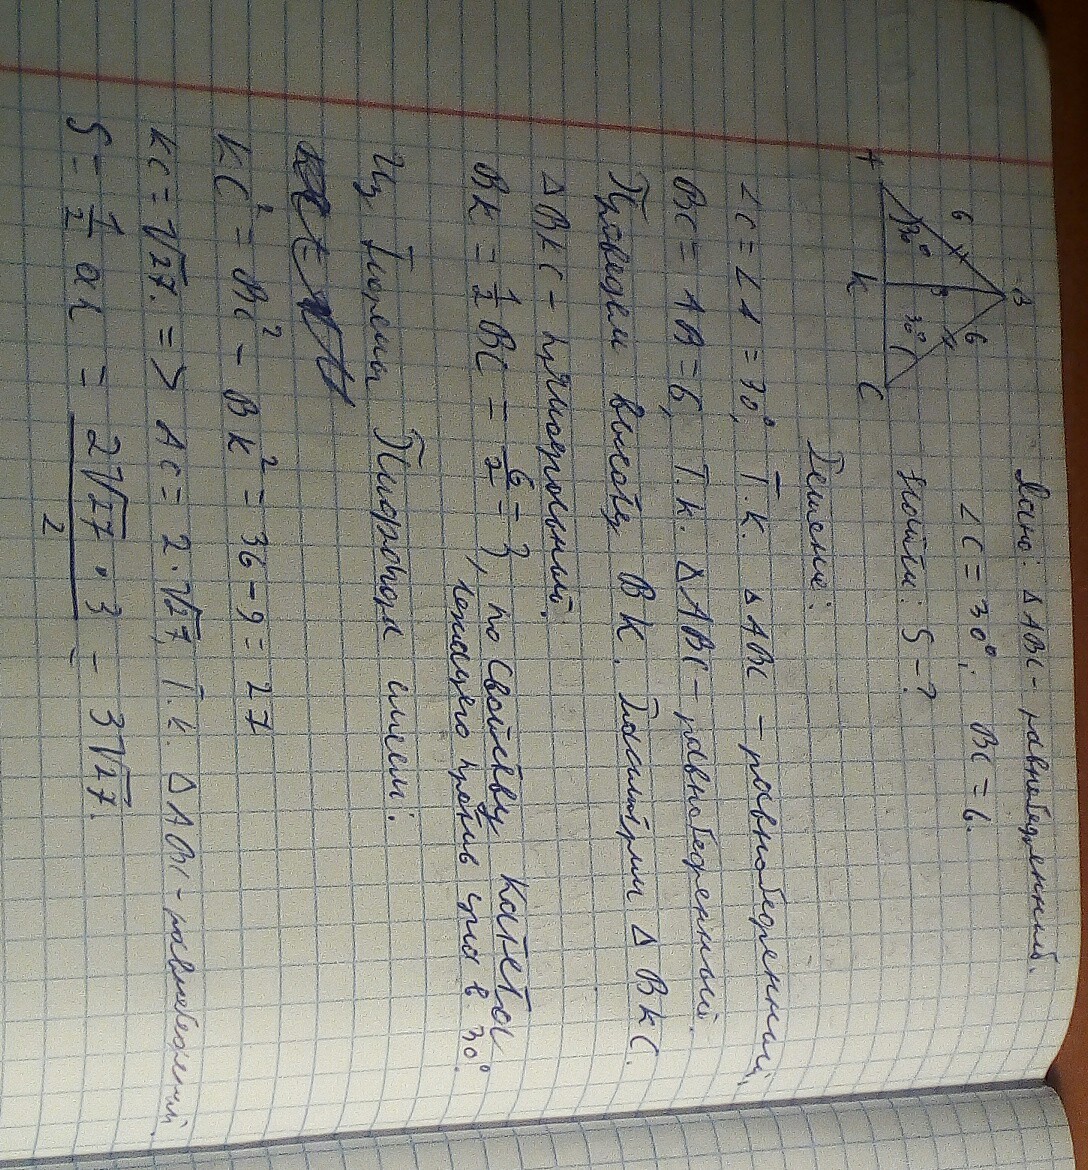 B
6
6
30°
3
30°
A
K
C
Дано: △ABC - равнобедренный.
∠C = 30°; BC = 6.
Найти: S - ?
Решение:
∠C = ∠A = 30°, Т.к. △ABC - равнобедренный,
BC = AB = 6, Т.к. △ABC - равнобедренный.
Проведем высоту BK. Рассмотрим △BKC.
△BKC - прямоугольный,
BK = 1/2 BC = 6/2 = 3, по свойству катета
лежащего против угла в 30°.
Из Теоремы Пифагора имеем:
KC² = BC² - BK² = 36 - 9 = 27
KC = √27. => AC = 2·√27, Т.к. △ABC - равнобедренный.
S = 1/2 ah = 2√27 · 3 / 2 = 3√27.